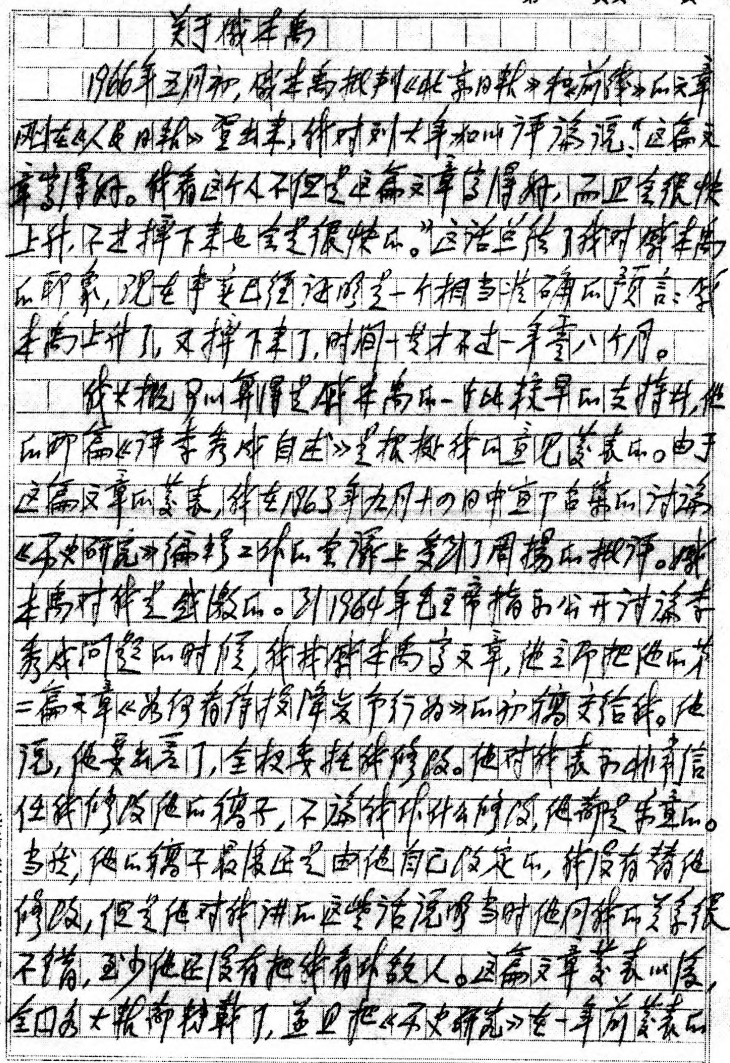 关于戚本禹
1966年五月初，戚本禹批判《北京日报》和《前线》的文章
刚在《人民日报》登出来，我对刘大年和以评论说：“这篇文
章写得好。我看这个人不但是这篇文章写得好，而且会很快
上升，不过摔下来也会是很快的。”这话总结了我对戚本禹
的印象，现在事实已经证明是一个相当准确的预言：戚
本禹上升了，又摔下来了，时间一共才不过一年零八个月。
我大概可以算得是戚本禹的一个比较早的支持者，他
的那篇《评李秀成自述》是根据我的意见发表的。由于
这篇文章的发表，我在1963年九月十四日中宣部召集的讨论
《历史研究》编辑工作的会议上受到了周扬的批评。戚
本禹对我是感激的。到1964年毛主席指示公开讨论李
秀成问题的时候，我找戚本禹写文章，他立即把他的第
二篇文章《如何看待投降变节行为》的初稿交给我。他
说，他要出差了，全权委托我修改。他对我表示非常信
任我修改他的稿子，不论我作什么修改，他都是乐意的。
当然，他的稿子最后还是由他自己改定的，我没有替他
修改，但是他对我讲的这些话说明当时他同我的关系很
不错，至少他还没有把我看作敌人。这篇文章发表以后，
全国各大报都转载了，并且把《历史研究》在一年前发表的